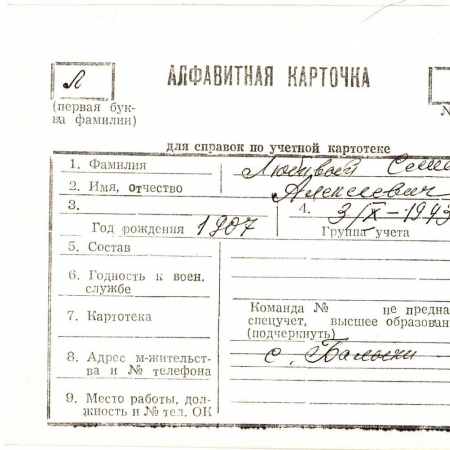 Л
АЛФАВИТНАЯ КАРТОЧКА
(первая бук-
ва фамилии)
№
для справок по учетной картотеке
1. Фамилия
2. Имя, отчество Алексеевич
3.
Год рождения 1907
4. 3/IX-1943
Группа учета
5. Состав
6. Годность к воен.
службе
7. Картотека
Команда № не предна
спецучет, высшее образован
(подчеркнуть)
8. Адрес м-жительст-
ва и № телефона
с.
9. Место работы, дол-
жность и № тел. ОК